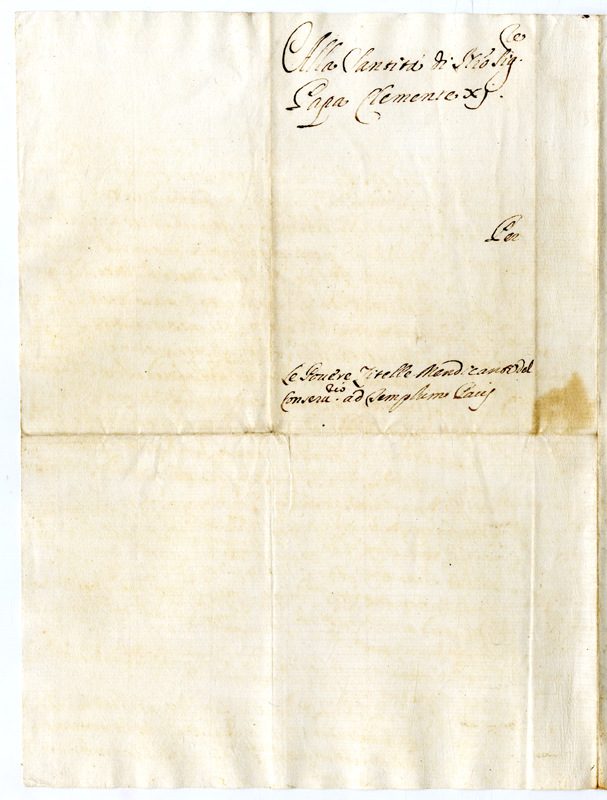 Alla Santità di Nro Sig.re
Papa Clemente XI.
Per
Le Povere Zitelle Mendicante del
Conserv.rio ad Templum Pacis